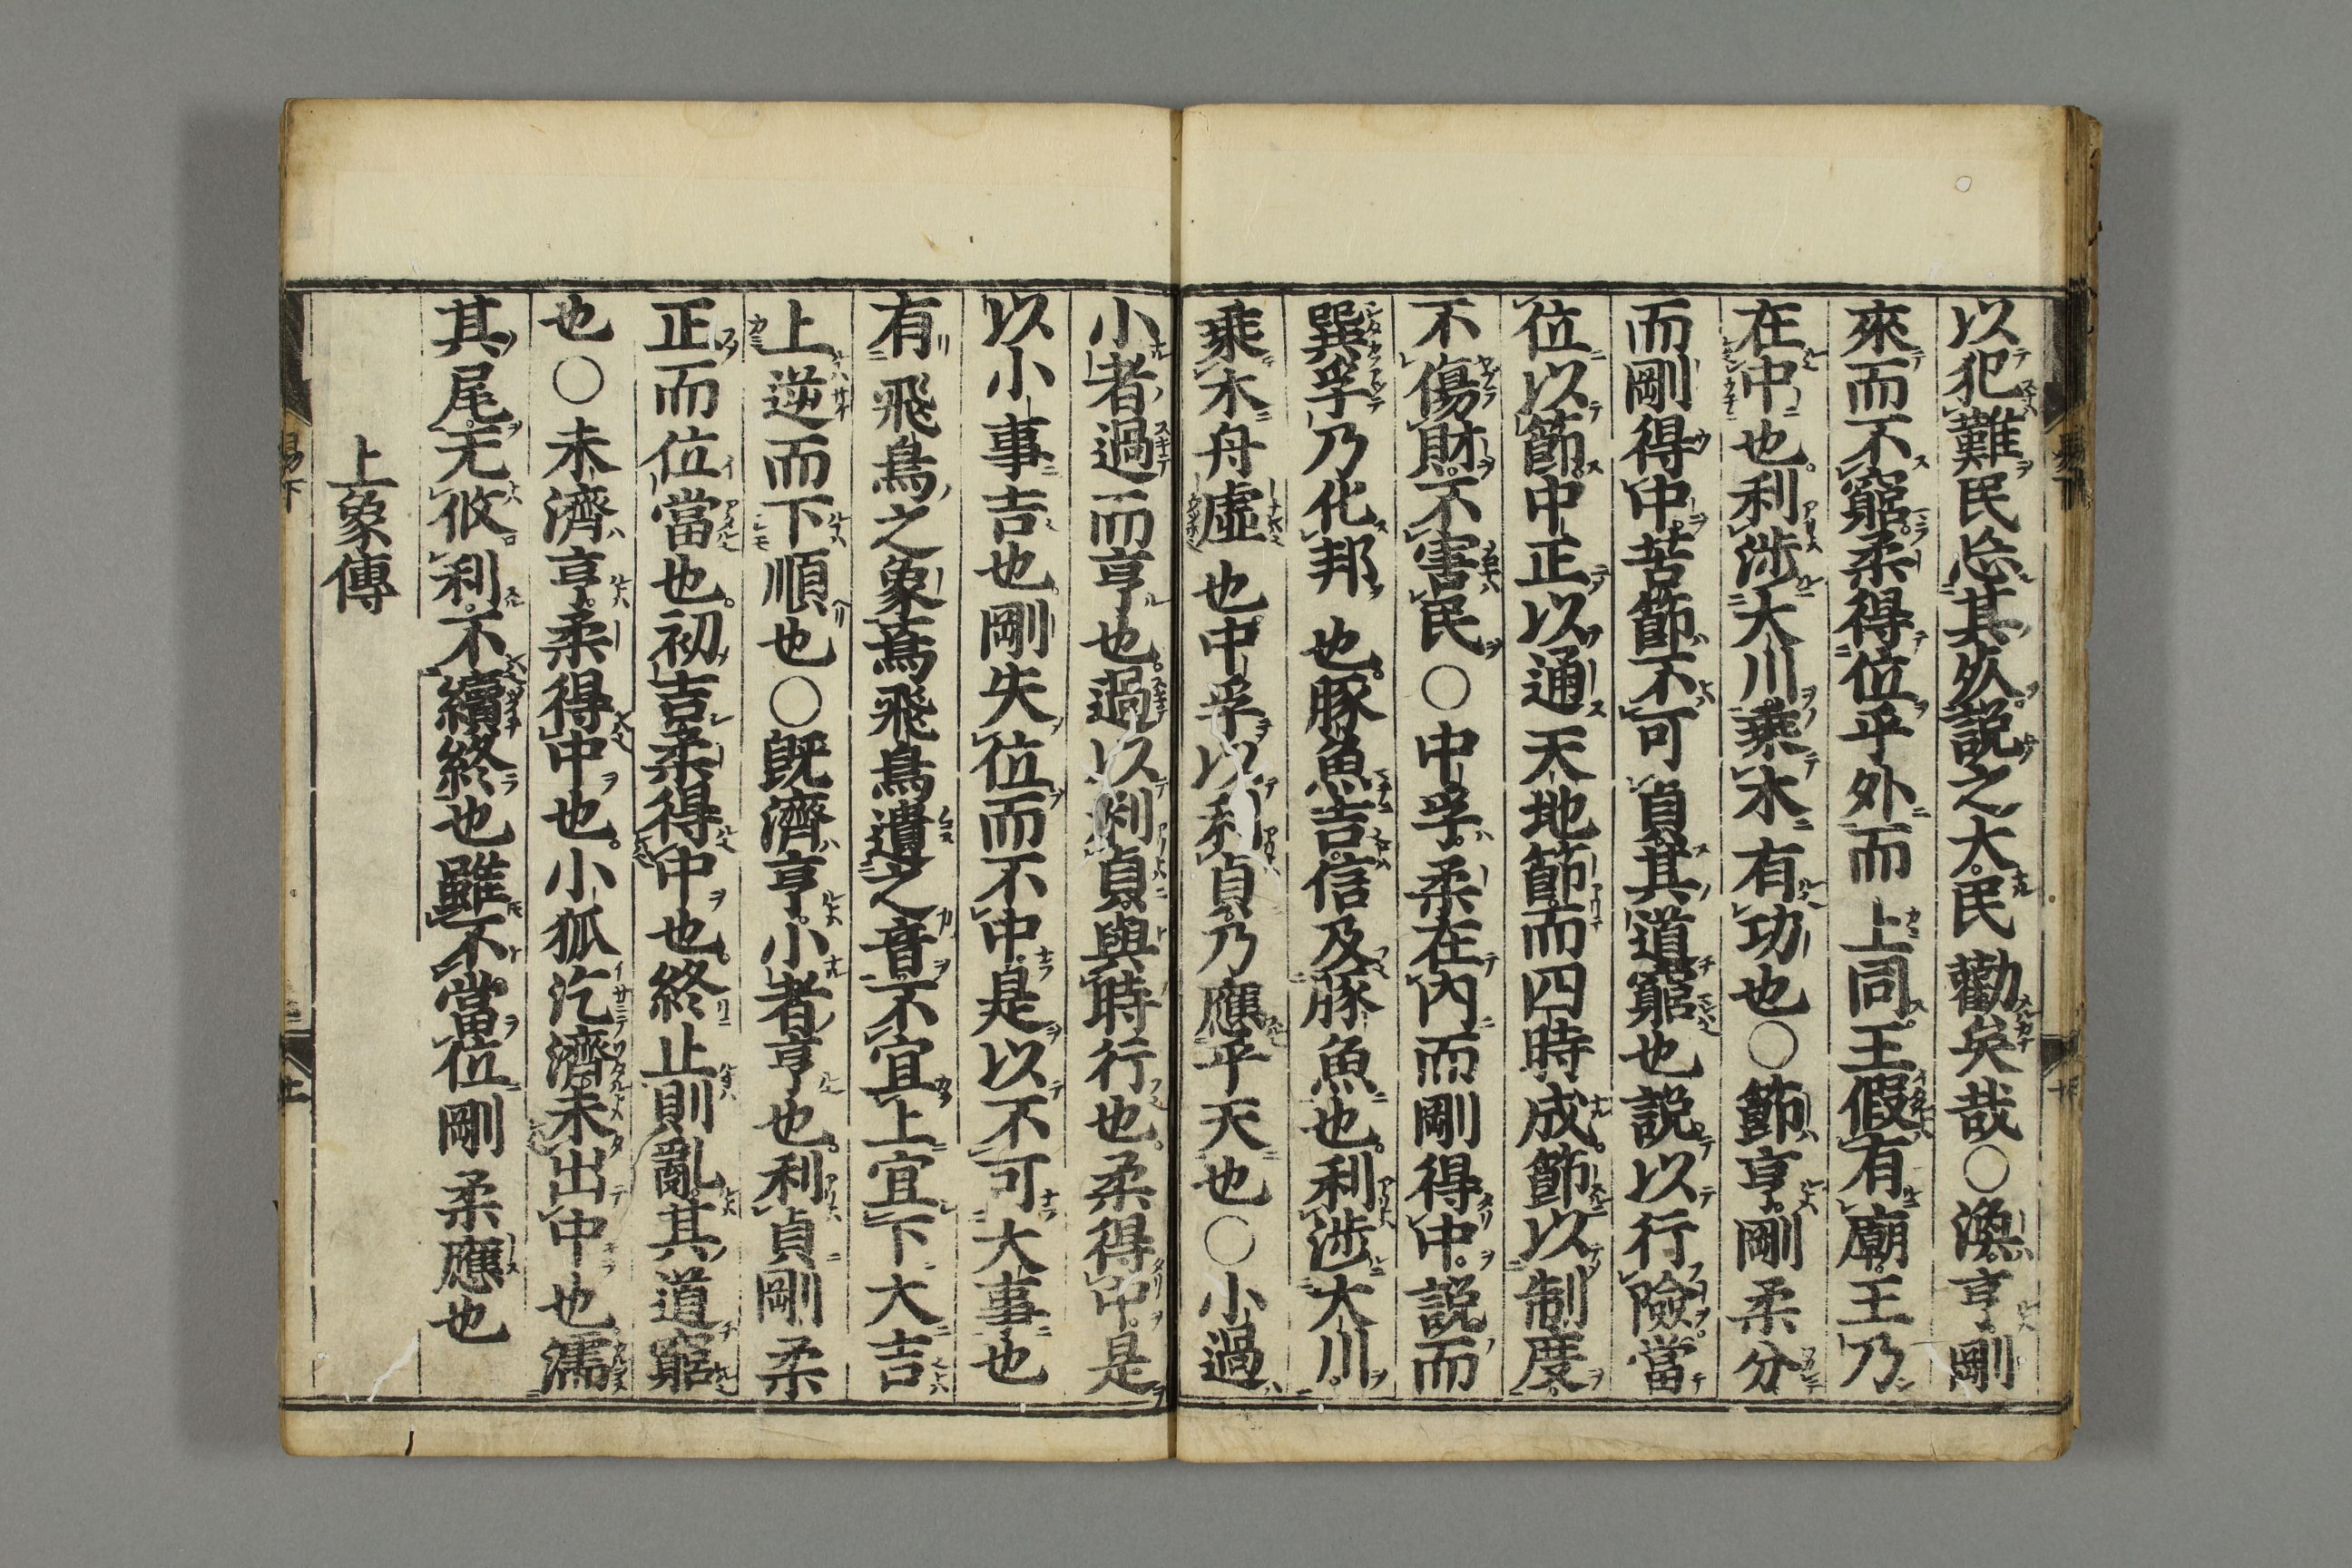 以犯難民忘其死説之大民勸矣哉○渙亨剛
來而不窮柔得位乎外而上同王假有廟王乃
在中也利渉大川乘木有功也○節亨剛柔分
而剛得中苦節不可貞其道窮也説以行險當
位以節中正以通天地節而四時成節以制度
不傷財不害民○中孚柔在内而剛得中説而
巽孚乃化邦也豚魚吉信及豚魚也利渉大川
乘木舟虛也中孚以利貞乃應乎天也○小過
小者過而亨也過以利貞與時行也柔得中是
以小事吉也剛失位而不中是以不可大事也
有飛鳥之象焉飛鳥遺之音不宜上宜下大吉
上逆而下順也○既濟亨小者亨也利貞剛柔
正而位當也初吉柔得中也終止則亂其道窮
也○未濟亨柔得中也小狐汔濟未出中也濡
其尾无攸利不續終也雖不當位剛柔應也
上彖傳
易下